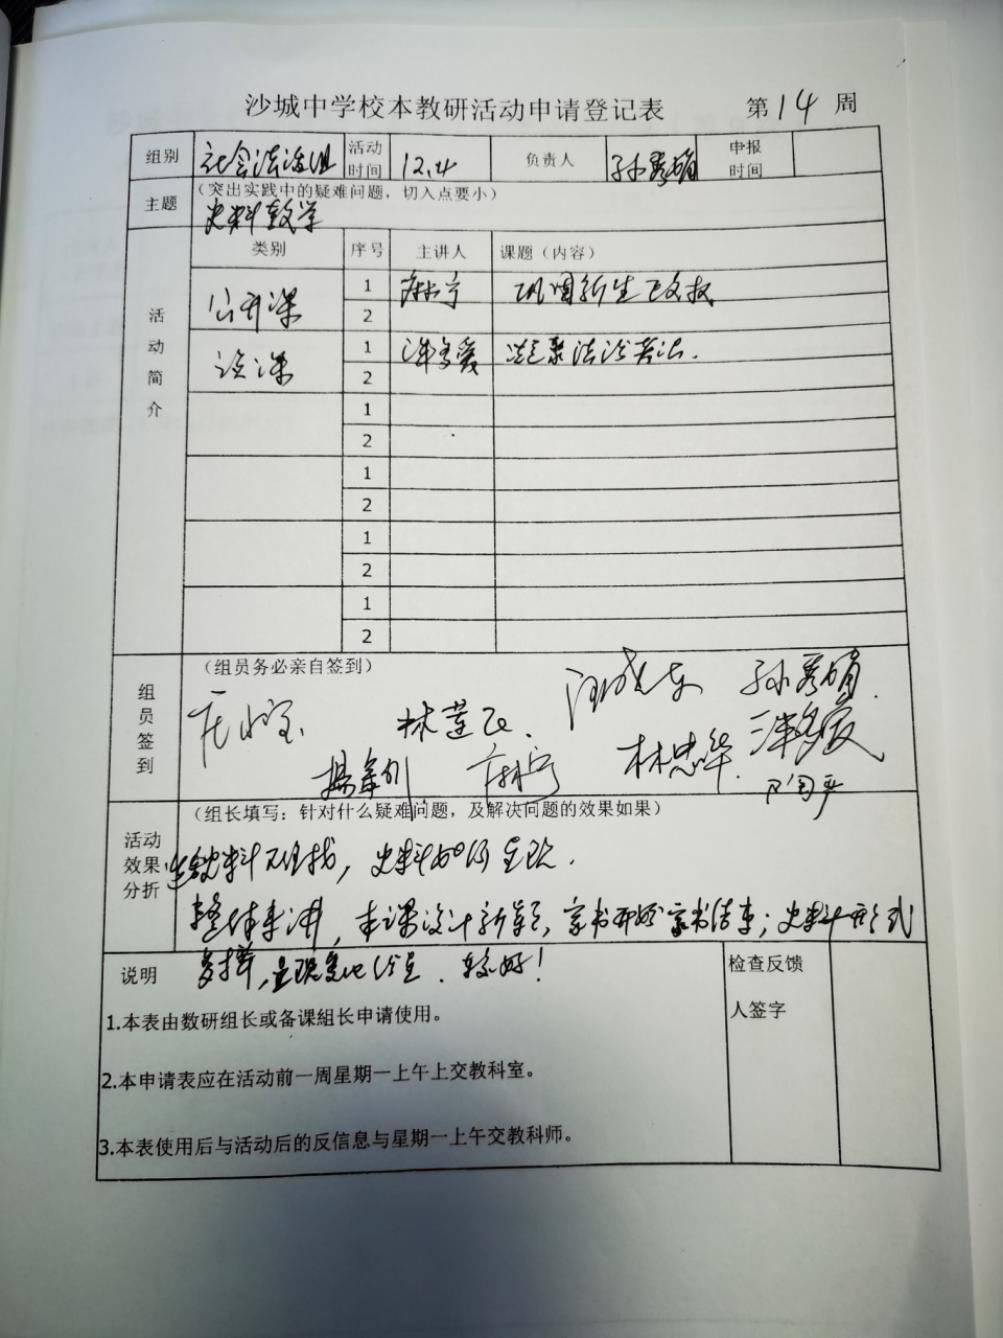 沙城中学校本教研活动申请登记表 第14周
组别 社会法治组 活动时间 12.4 负责人 孙秀娟 申报时间
主题 (突出实践中的疑难问题,切入点要小)
史料教学
活动简介 类别 序号 主讲人 课题(内容)
公开课 1 巩固新生政权
2
议课 1
2
1
2
1
2
1
2
1
2
组员签到 (组员务必亲自签到)
孙秀娟
林莲飞
林忠华
活动效果分折 (组长填写:针对什么疑难问题,及解决问题的效果如果)
史料难找,史料如何呈现.
整体来讲,本课设计新颖,家书开始家书结束;史料形式
多样,呈现 较好!
说明 检查反馈人签字
1.本表由数研组长或备课組长申请使用。
2.本申请表应在活动前一周星期一上午上交教科室。
3.本表使用后与活动后的反信息与星期一上午交教科师。